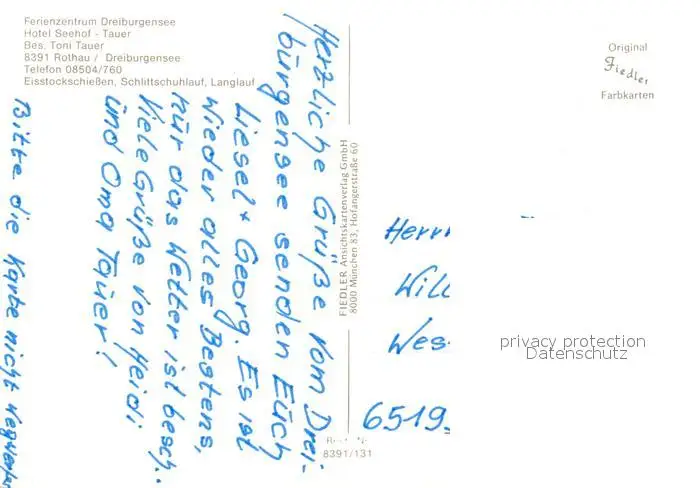 Ferienzentrum Dreiburgensee
Hotel Seehof - Tauer
Bes. Toni Tauer
8391 Rothau / Dreiburgensee
Telefon 08504/760
Eisstockschießen, Schlittschuhlauf, Langlauf
Herzliche Grüße vom Drei-
bürgensee senden Eüch
Liesel + Georg. Es ist
wieder alles Bestens,
nür das Wetter ist besch..
Viele Grüße von Heidi
ünd Oma Taüer!
Bitte die Karte nicht wegwerfen
FIEDLER Ansichtskartenverlag GmbH
8000 München 83, Hofangerstraße 60
Original
Fiedler
Farbkarten
Herrn
Will
Wes
6519
8391/131
privacy protection
Datenschutz